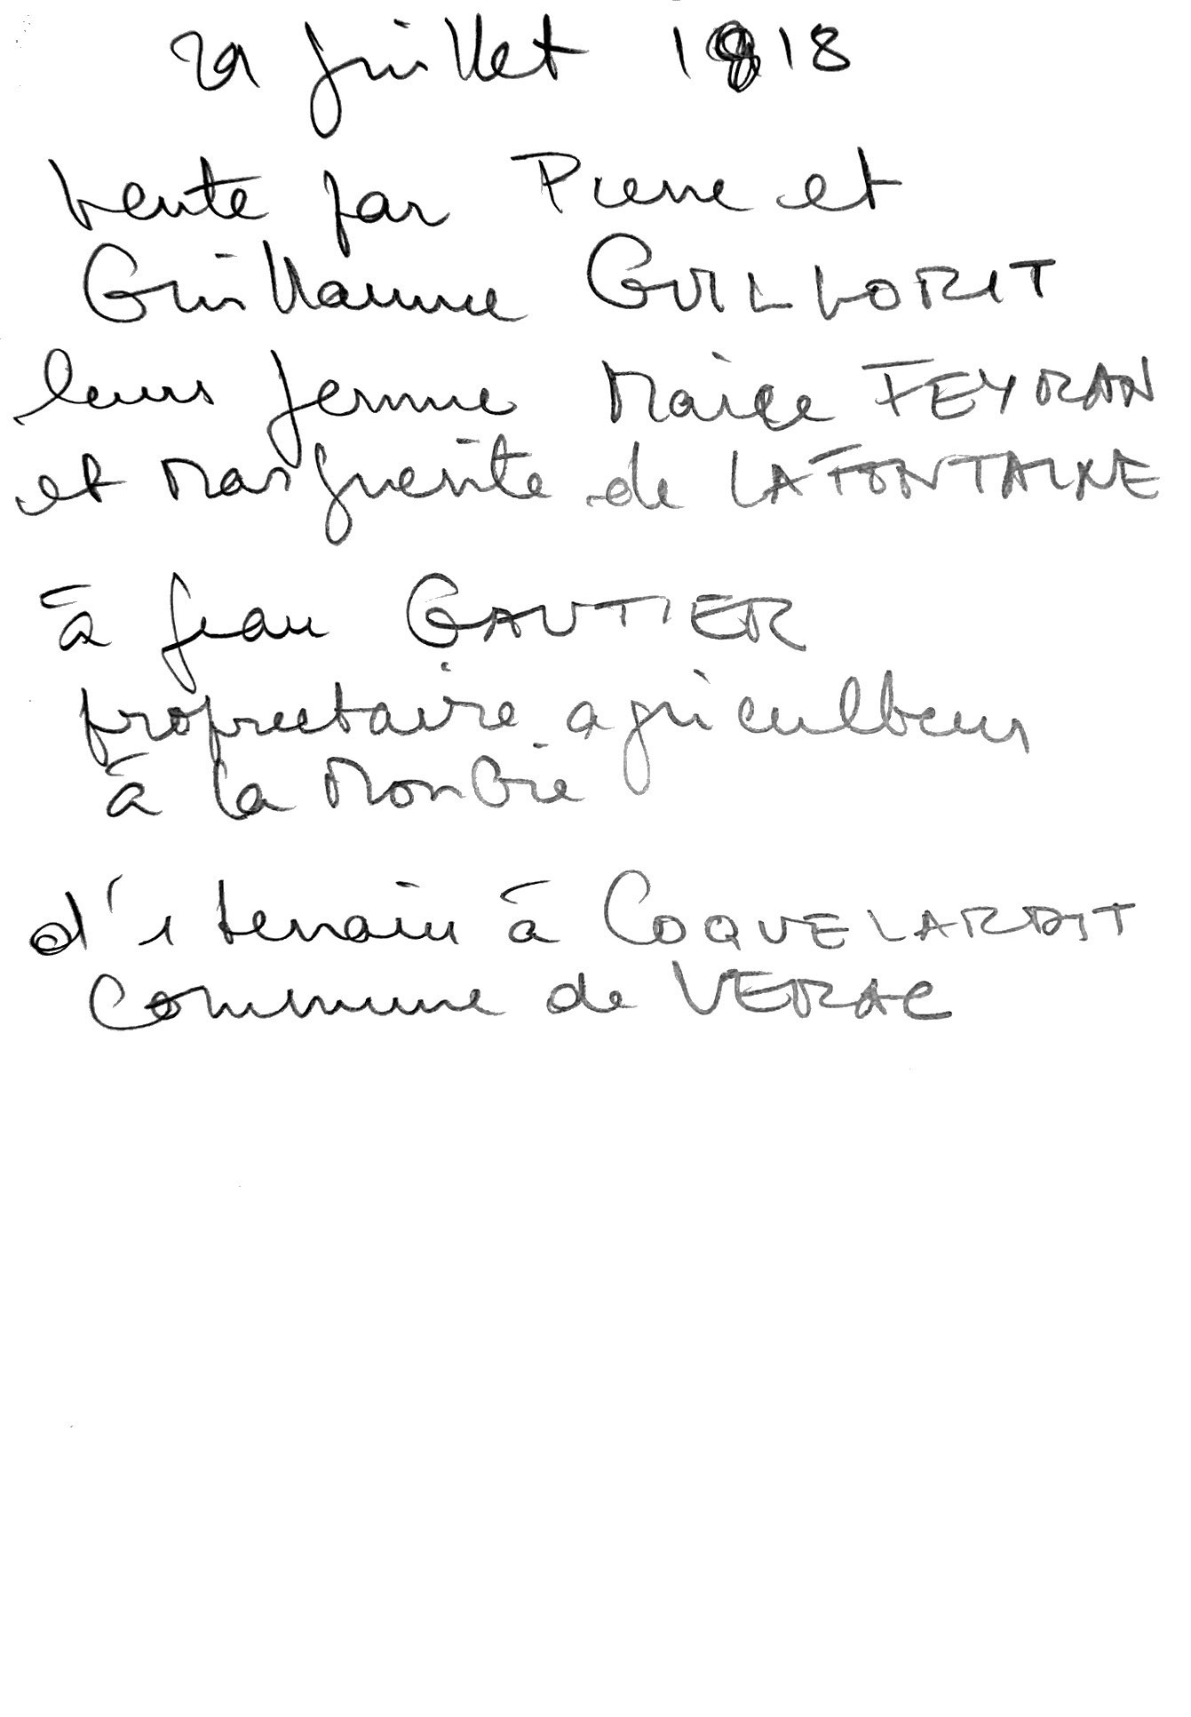 21 juillet 1818
vente par Pierre et
Guillaume GUILLORIT
leurs femme Marie FEYRAN
et Marguerite de LAFONTAINE
à Jean GAUTIER
propriétaire agriculteur
à la Monbrie
d'1 terrain à COQUELARDIT
Commune de VERAC